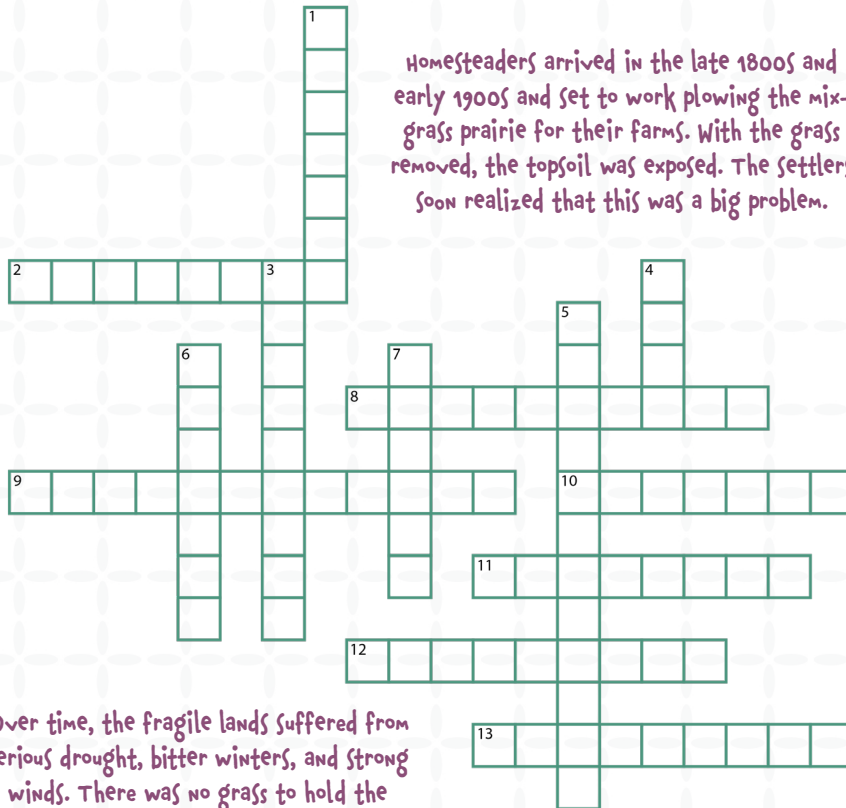 1
Homesteaders arrived in the late 1800s and
early 1900s and set to work plowing the mix-
grass prairie for their farms. With the grass
removed, the topsoil was exposed. The settlers
soon realized that this was a big problem.
2
3
4
5
6
7
8
9
10
11
12
over time, the fragile lands suffered from
serious drought, bitter winters, and strong
13
winds. There was no grass to hold the